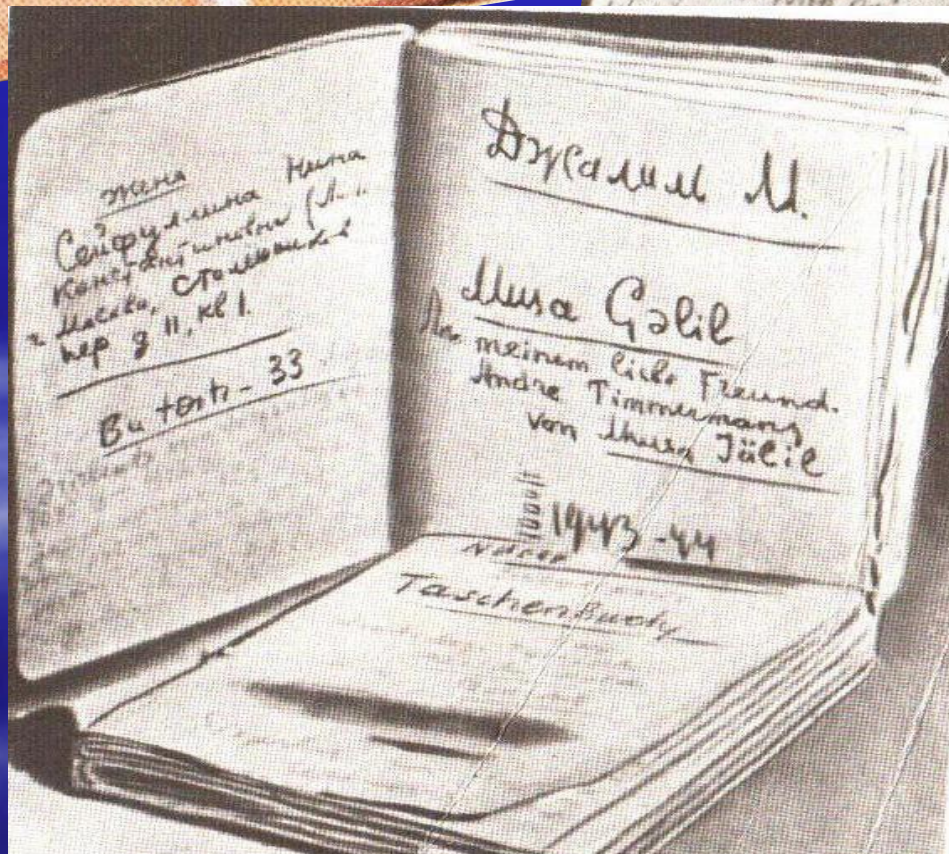 жена
Сейфуллина Нина
Константиновна
г. Москва, Столешников
пер д 11, кв 1.
Джалил М.
Musa Çəlil
meinem liebe Freund.
Andre Timmermans
von Musa Jälil
1943-44
Taschenbuch